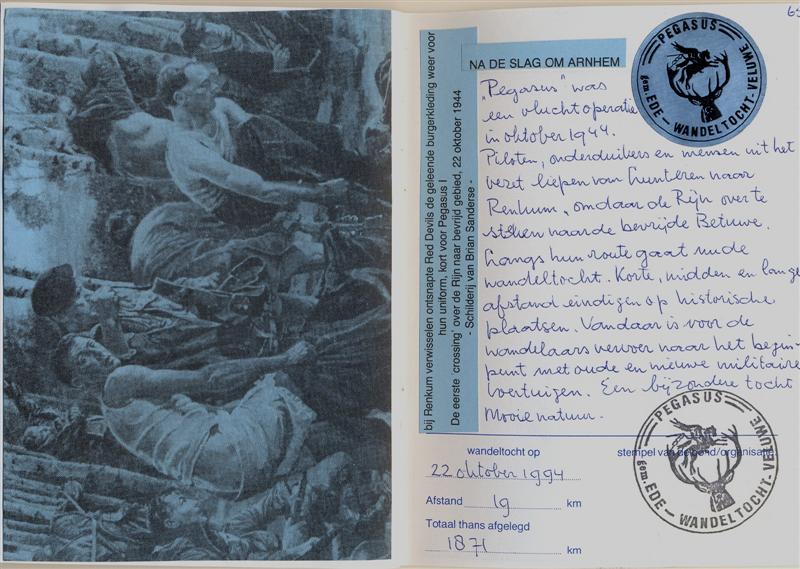 65
NA DE SLAG OM ARNHEM
bij Renkum verwisselen ontsnapte Red Devils de geleende burgerkleding weer voor
hun uniform, kort voor Pegasus I
De eerste 'crossing' over de Rijn naar bevrijd gebied, 22 oktober 1944
- Schilderij van Brian Sanderse -
PEGASUS
gem. EDE - WANDELTOCHT - VELUWE
„Pegasus" was
een vluchtoperatie
in oktober 1944.
Piloten, onderduikers en mensen uit het
verzet liepen van Lunteren naar
Renkum, om daar de Rijn over te
steken naar de bevrijde Betuwe.
Langs hun route gaat nu de
wandeltocht. Korte, midden en lange
afstand eindigen op historische
plaatsen. Vandaar is voor de
wandelaars vervoer naar het begin-
punt met oude en nieuwe militaire
voertuigen. Een bijzondere tocht
Mooie natuur.
wandeltocht op
stempel van de bond/organisatie
22 oktober 1994
Afstand 19 km
Totaal thans afgelegd
1871 km
PEGASUS
gem. EDE - WANDELTOCHT - VELUWE